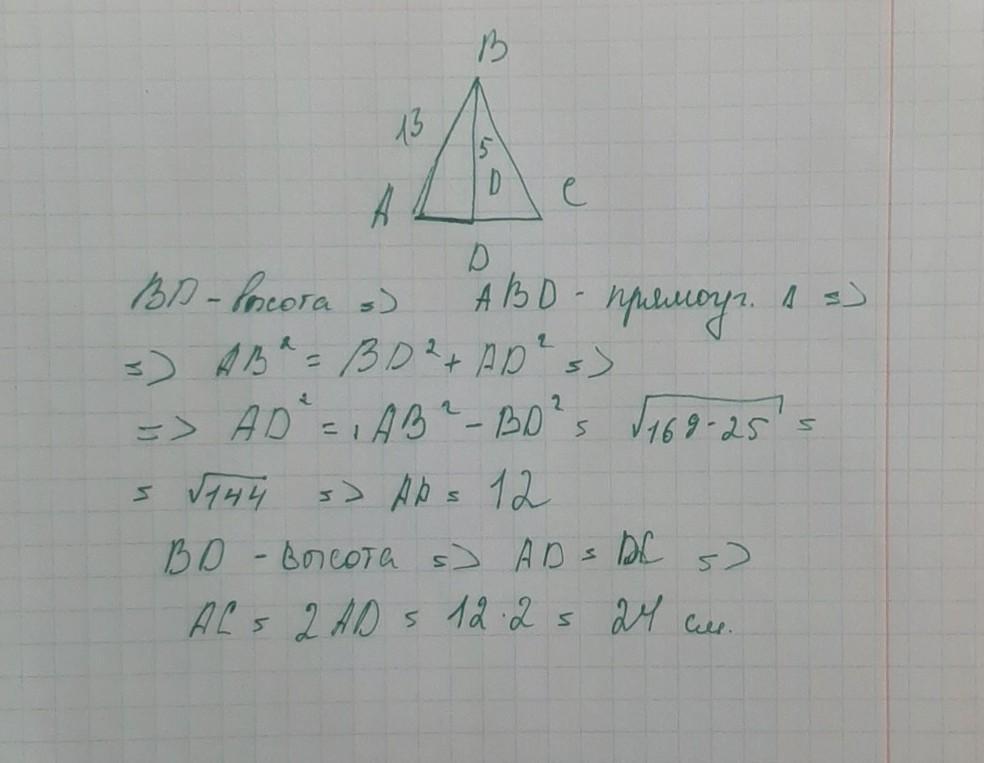 B
13
5
D
A
C
D
BD - высота => ABD - прямоуг. Δ =>
=> AB² = BD² + AD² =>
=> AD² = AB² - BD² = √169-25 =
= √144 => AD = 12
BD - высота => AD = DC =>
AC = 2AD = 12·2 = 24 см.